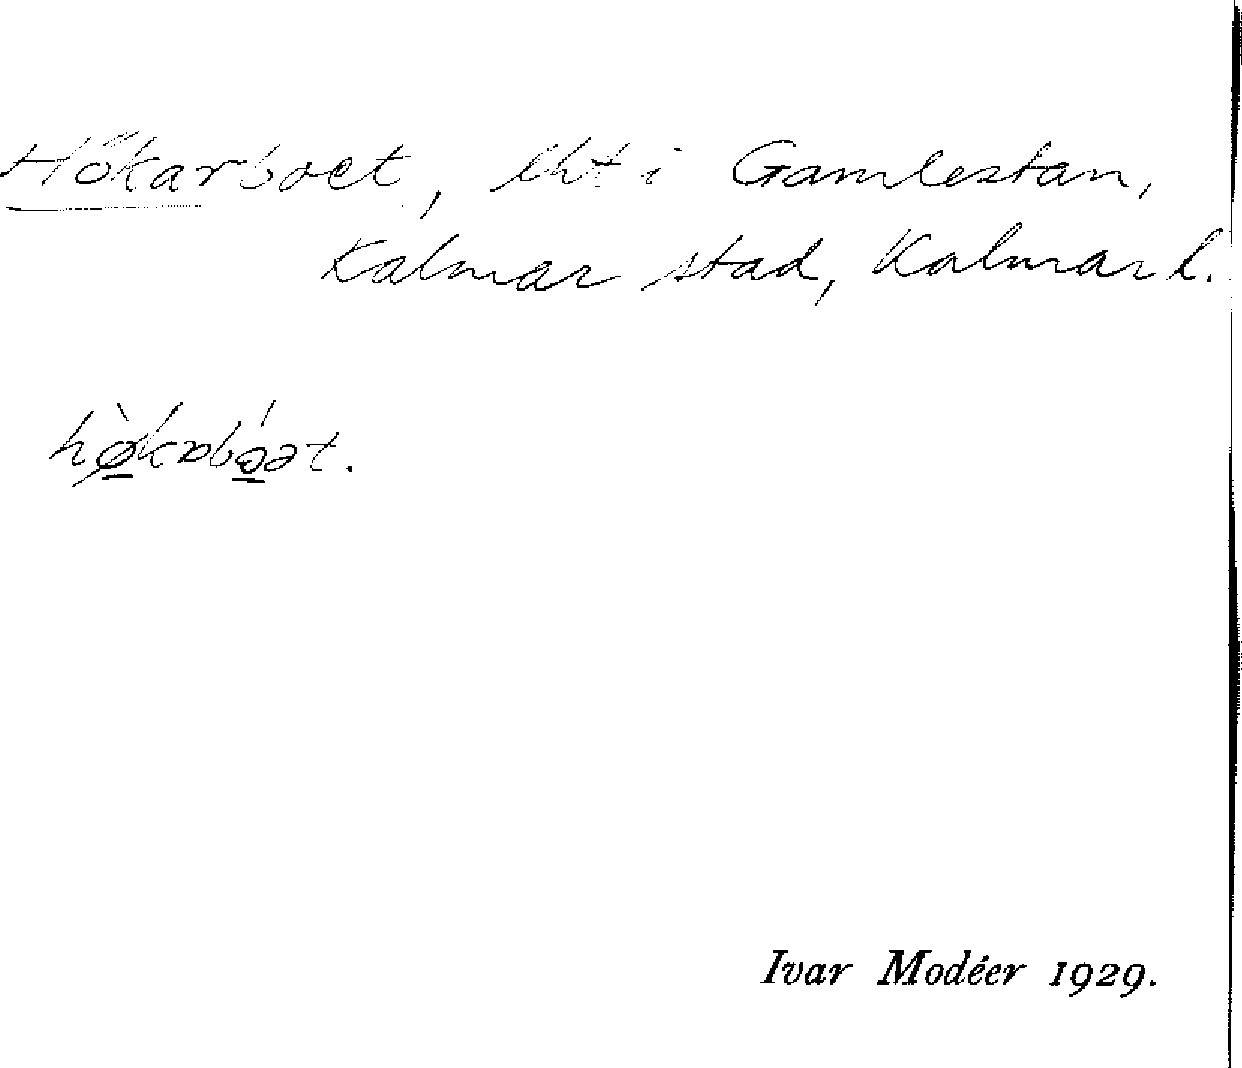 Hökarboet, lht i Gamlestan,
Kalmar stad, Kalmar l.
Ivar Modéer 1929.